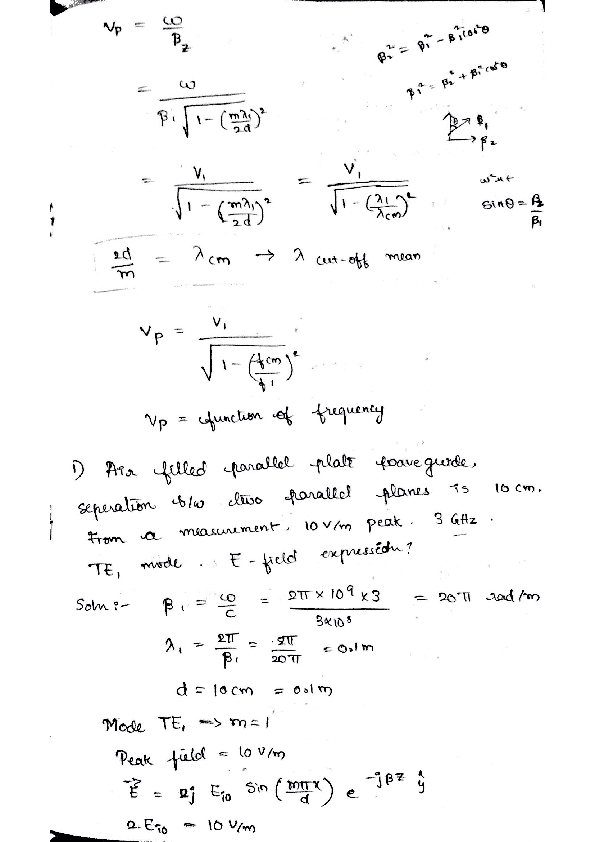 Vp = ω / βz
= ω / β₁ √(1 - (mλ₁/2d)²)
= V₁ / √(1 - (mλ₁/2d)²) = V₁ / √(1 - (λ₁/λcm)²)
β₂² = β₁² - β₁²cos²θ
β₁² = β₂² + β₁²cos²θ
θ β₁
β₂
sinθ = β₂/β₁
2d/m = λcm → λ cut-off mean
Vp = V₁ / √(1 - (fcm/f₁)²)
Vp = function of frequency
1) Air filled parallel plate waveguide,
seperation b/w two parallel planes is 10 cm.
From a measurement, 10 V/m peak. 3 GHz.
TE₁ mode. E-field expression?
Soln :- β₁ = ω/c = 2π × 10⁹ × 3 / 3×10⁸ = 20π rad/m
λ₁ = 2π/β₁ = 2π/20π = 0.1m
d = 10cm = 0.1m
Mode TE₁ => m=1
Peak field = 10 V/m
E⃗ = 2j Eio Sin (mπx/d) e^-jβz ŷ
2.Eio = 10 V/m